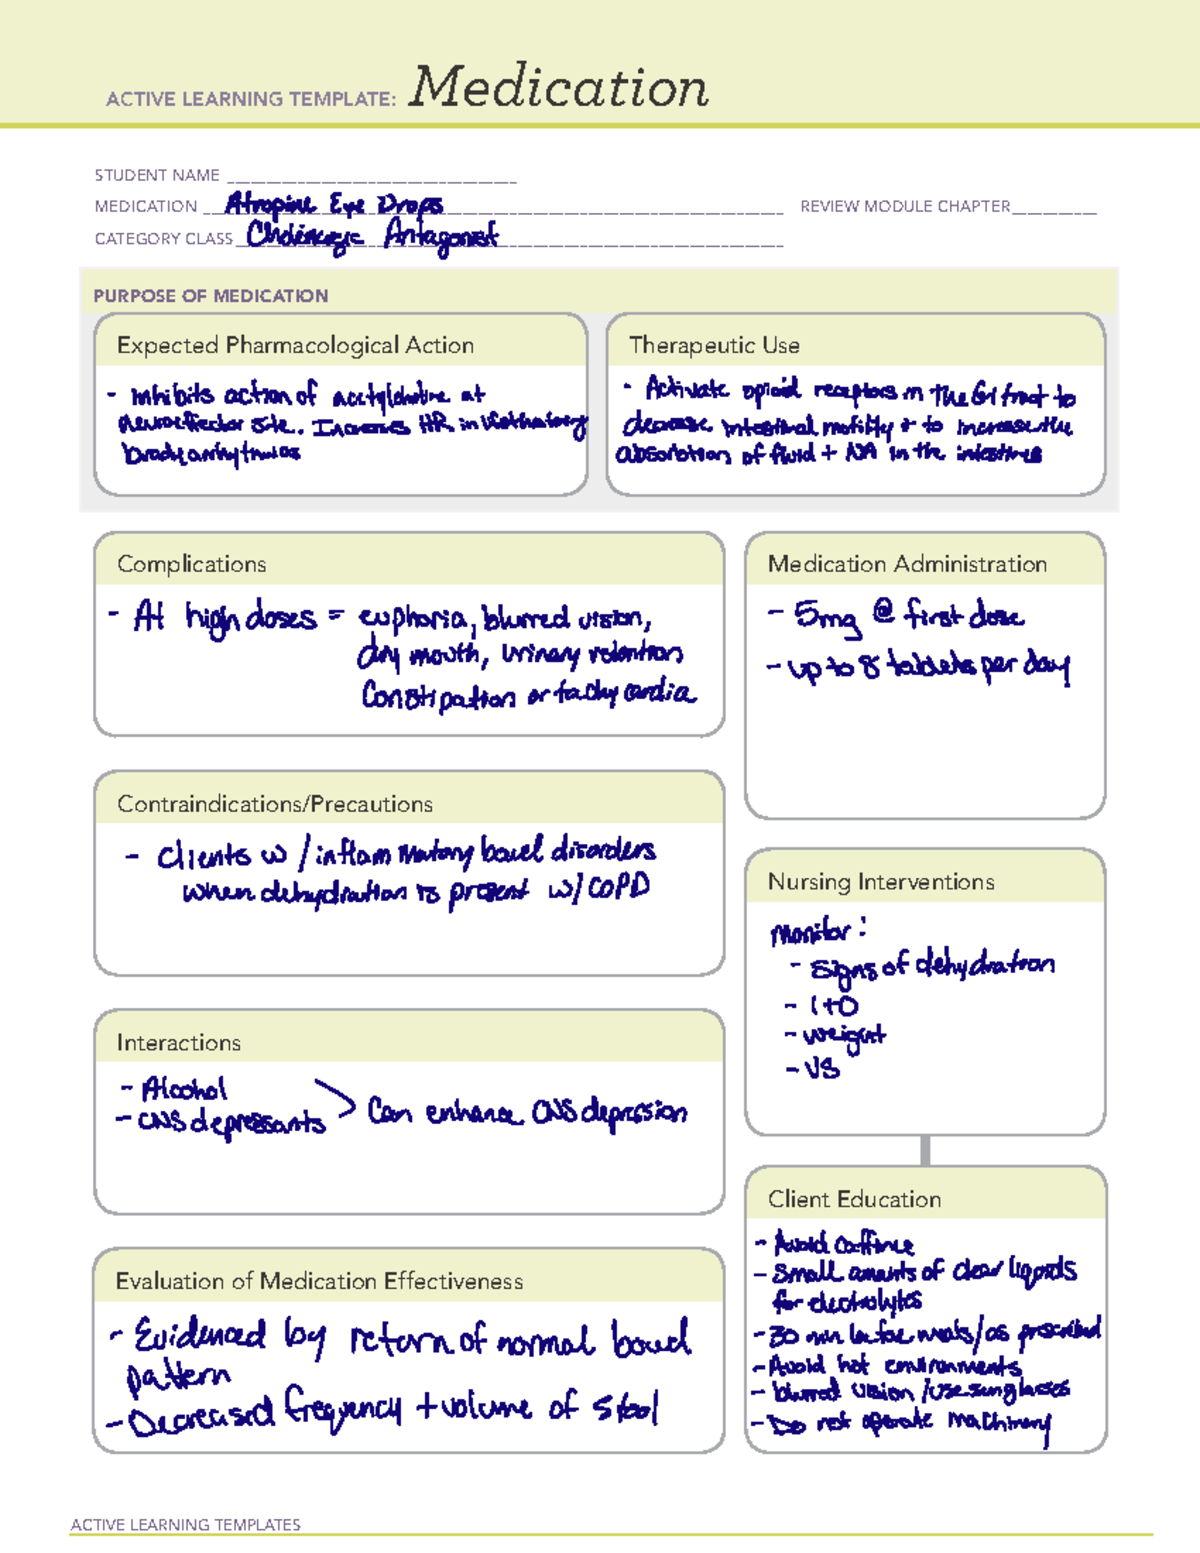 ACTIVE LEARNING TEMPLATE: Medication
STUDENT NAME
MEDICATION Atropine Eye Drops REVIEW MODULE CHAPTER
CATEGORY CLASS Cholinergic Antagonist
PURPOSE OF MEDICATION
Expected Pharmacological Action
- Inhibits action of acetylcholine at
neuroeffector site. Increases HR in
bradyarrhythmias
Therapeutic Use
- Activate opioid receptors in the GI tract to
decrease intestinal motility + to increase the
absorption of fluid + NA in the intestines
Complications
- At high doses = euphoria, blurred vision,
dry mouth, urinary retention
Constipation or tachycardia
Medication Administration
- 5mg @ first dose
- up to 8 tablets per day
Contraindications/Precautions
- Clients w/ inflammatory bowel disorders
when dehydration is present w/ COPD
Nursing Interventions
Monitor:
- Signs of dehydration
- I+O
- weight
- VS
Interactions
- Alcohol
- CNS depressants > Can enhance CNS depression
Client Education
- Avoid caffeine
- Small amounts of clear liquids
for electrolytes
- 30 min before meals/as prescribed
- Avoid hot environments
- blurred vision/use sunglasses
- Do not operate machinery
Evaluation of Medication Effectiveness
- Evidenced by return of normal bowel
pattern
- Decreased frequency + volume of stool
ACTIVE LEARNING TEMPLATES